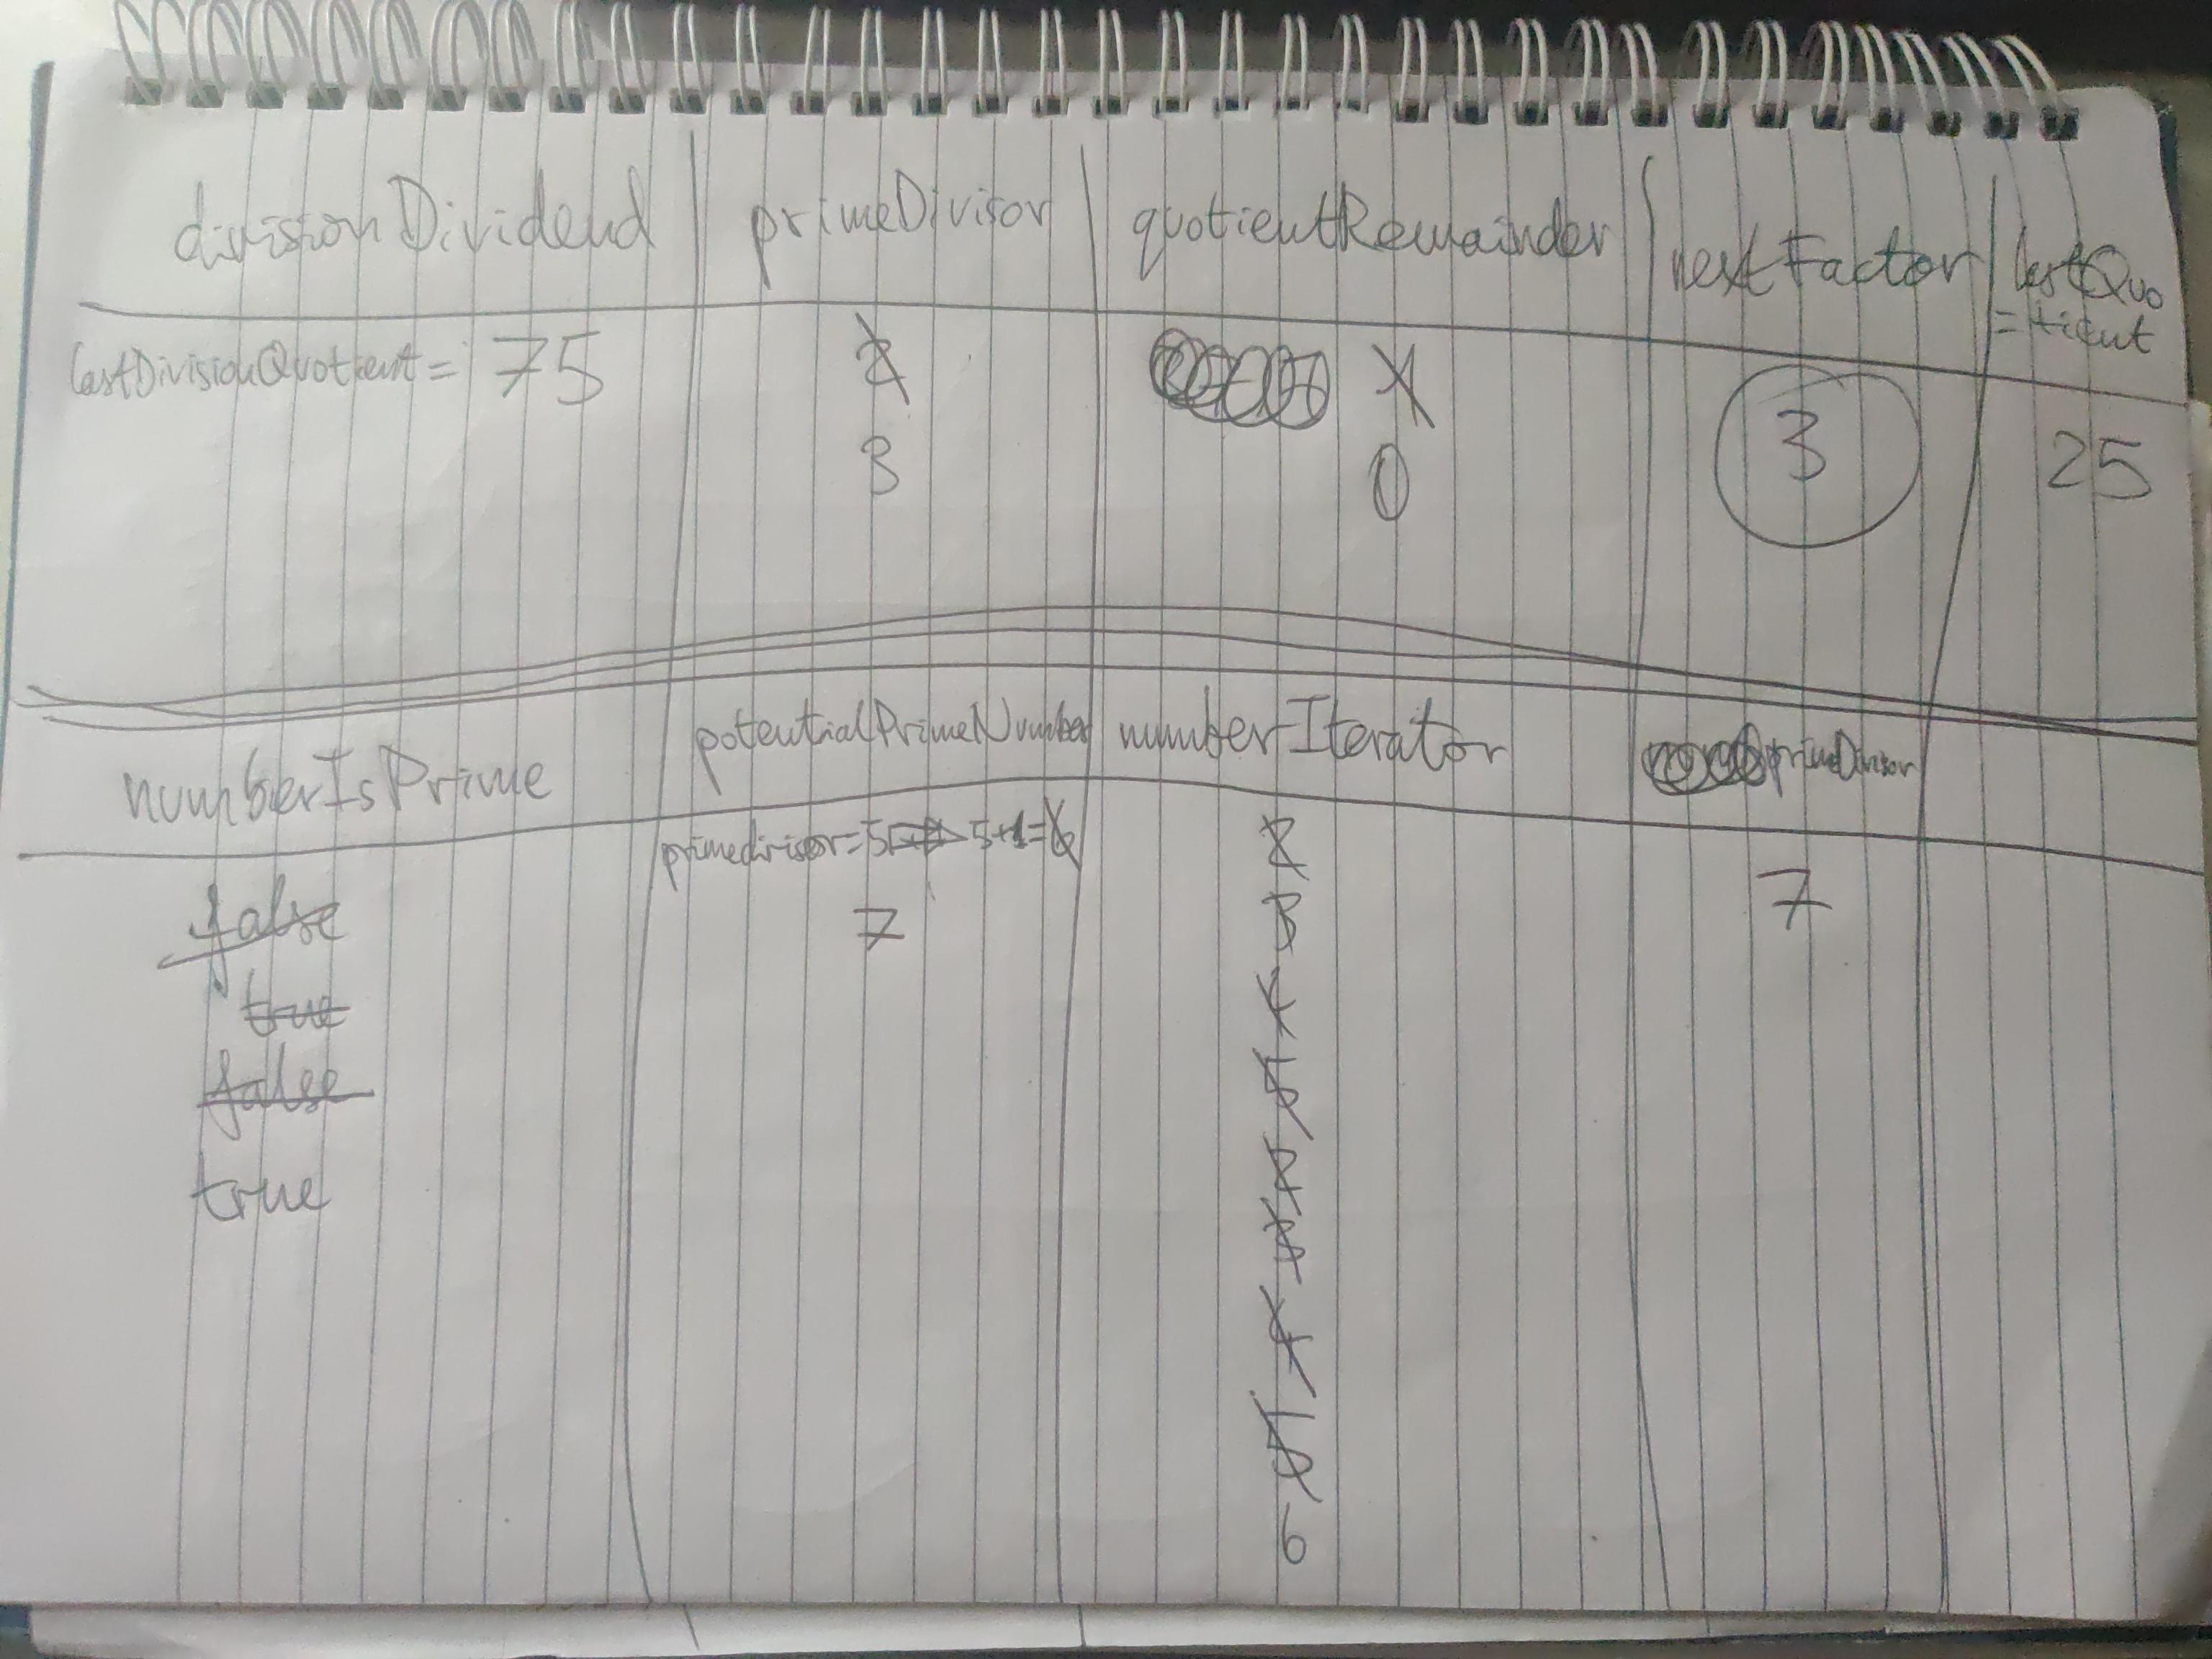 divisionDividend primeDivisor quotientRemainder nextFactor lastQuo
=tient
lastDivisionQuotient = 75 2 1
3 0 3 25
numberIsPrime potentialPrimeNumber numberIterator primeDivisor
primedivisor=5 5+1=6 2
false 7 3 7
true 4
false 5
true 2
3
4
5
6